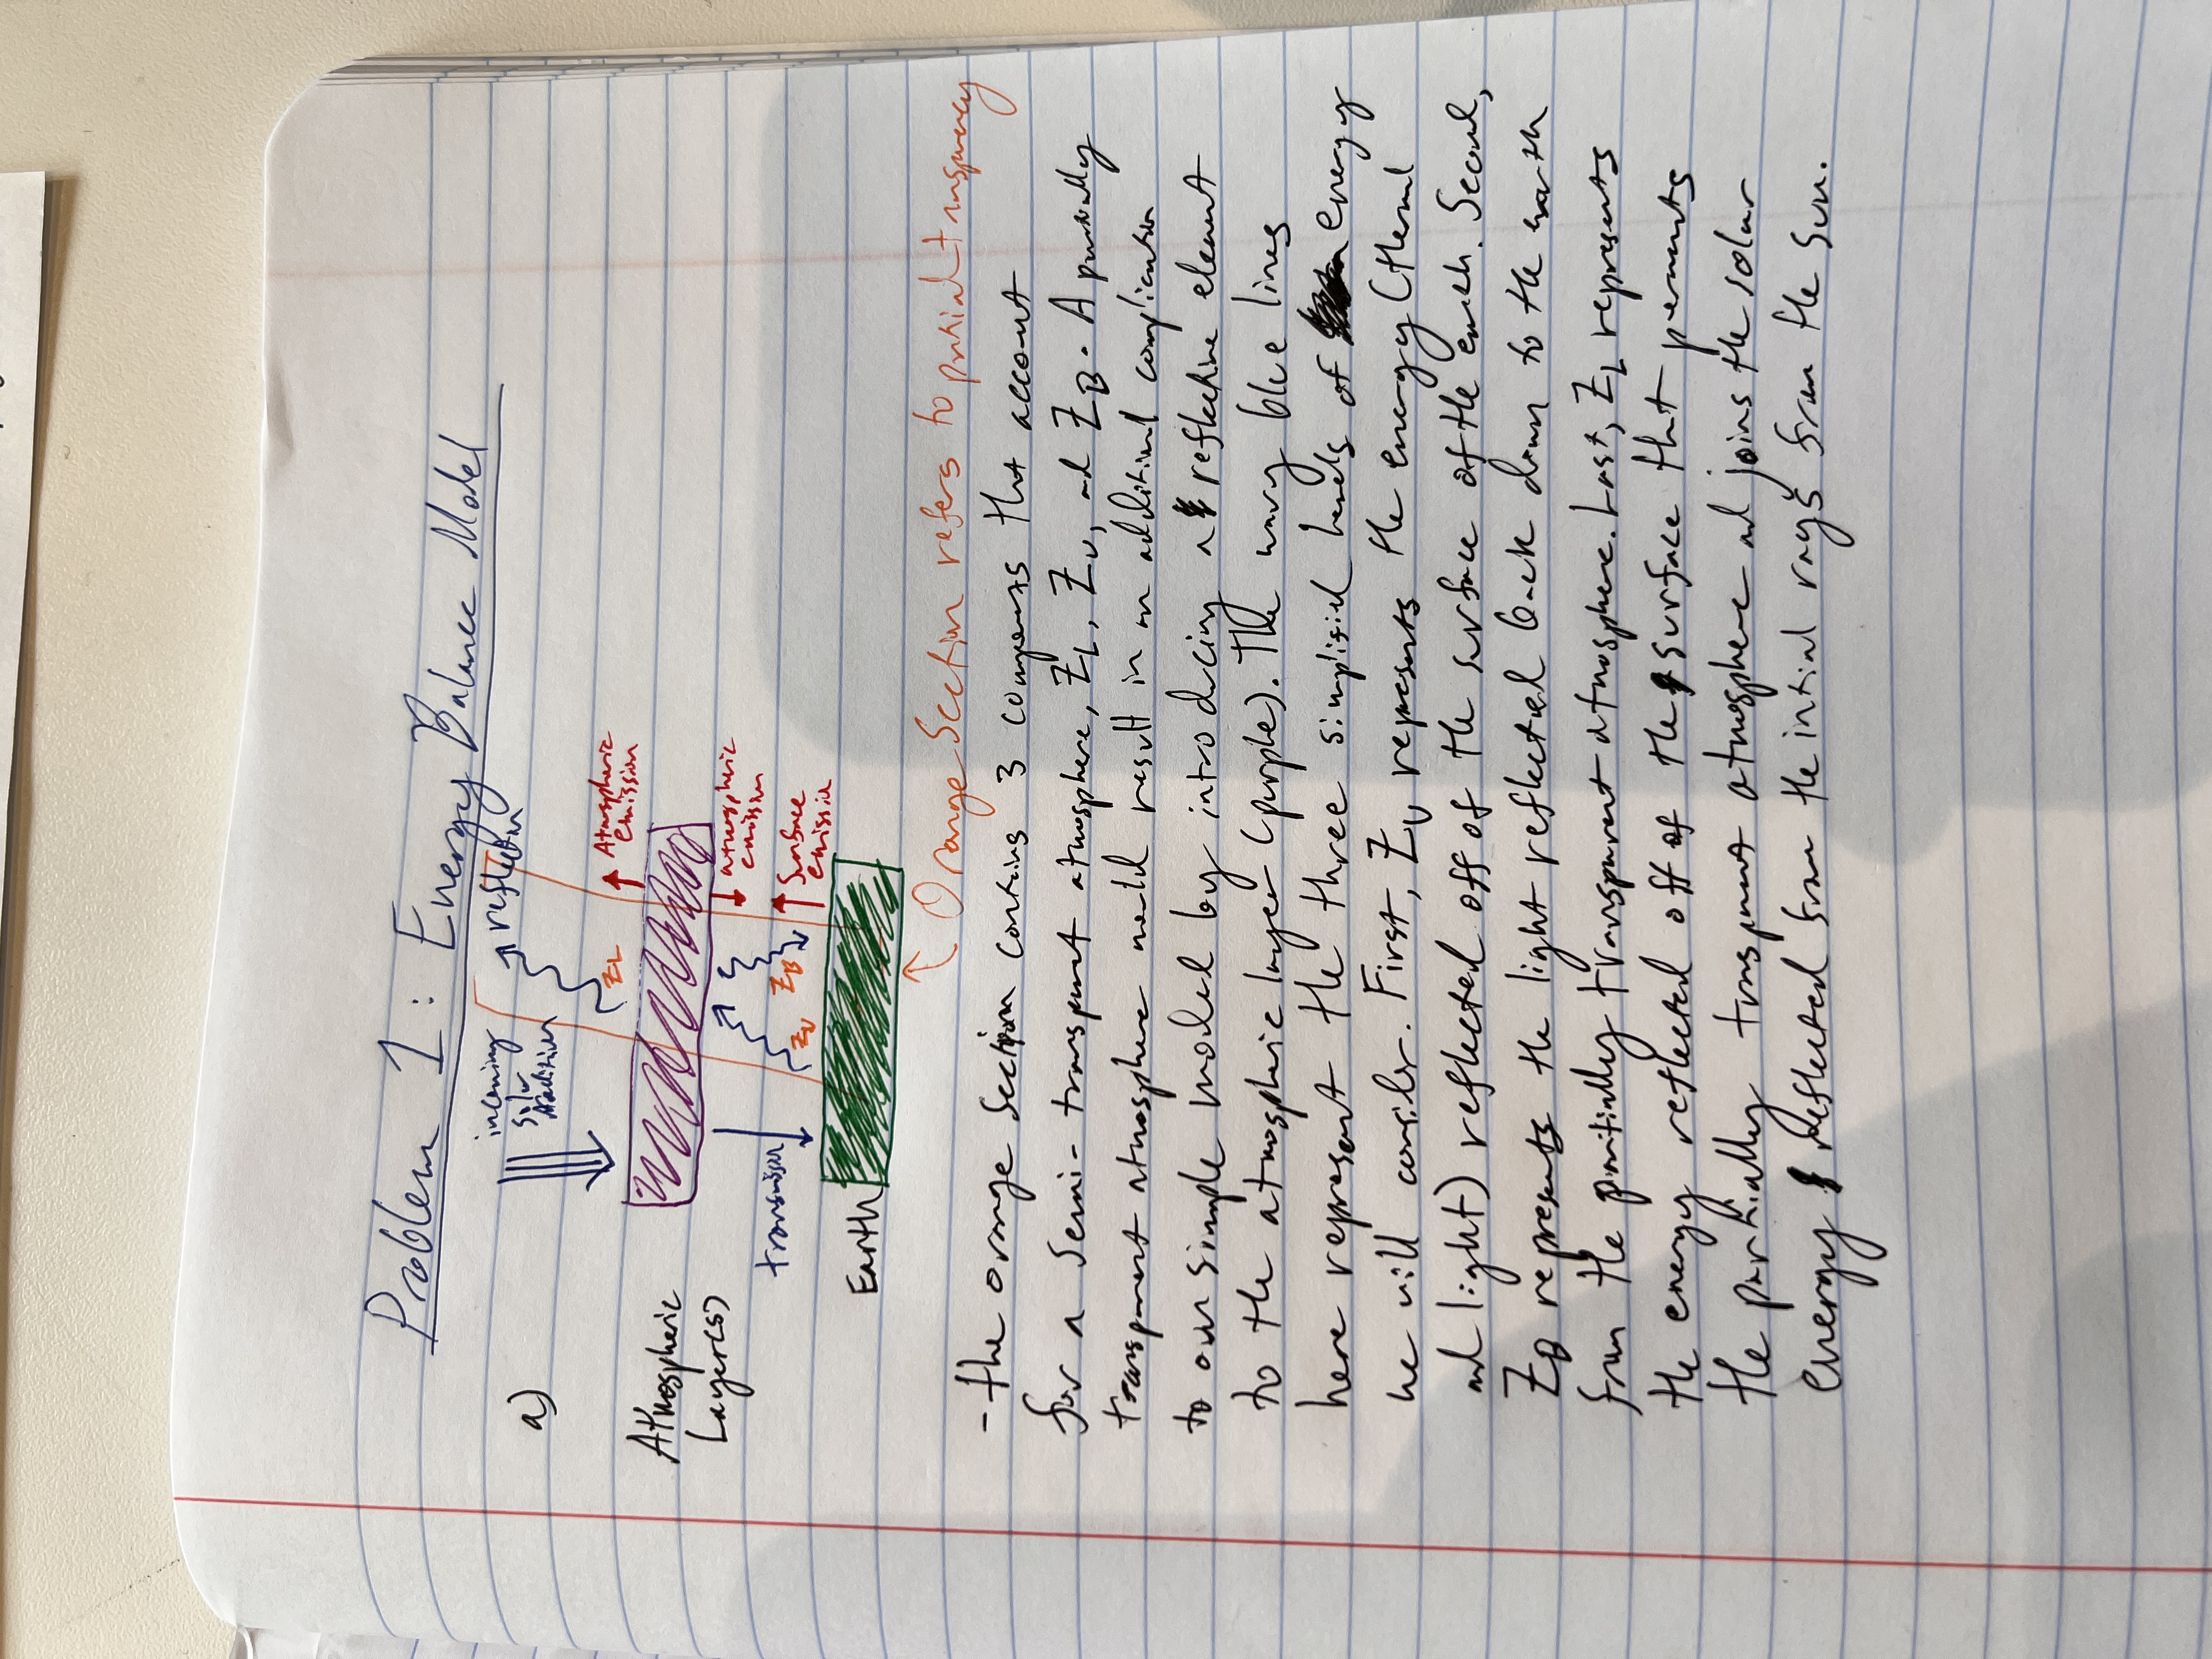 Problem 1: Energy Balance Model
a)
incoming
solar
radiation
reflection
ZL
Atmospheric
emission
Atmospheric
Layer(s)
atmospheric
emission
transmission
ZU
ZB
Surface
emission
Earth
Orange Section refers to partial transparency
- the orange section contains 3 components that account
for a semi-transparent atmosphere, ZL, ZU, and ZB. A partially
transparent atmosphere would result in an additional complication
to our simple model by introducing a reflective element
to the atmospheric layer (purple). The wavy blue lines
here represent the three simplified of energy
we will consider. First, ZU represents the energy (thermal
and light) reflected off of the surface of the earth. Second,
ZB represents the light reflected back down to the earth
from the partially transparent atmosphere. Last, ZL represents
the energy reflected off of the surface that
the partially transparent atmosphere and joins the solar
energy reflected from the intial rays from the sun.